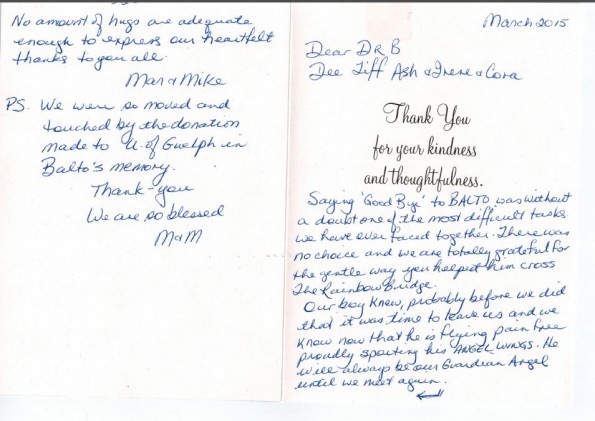 March 2015
Dear Dr B
Dee Tiff Ash & Irene & Cora
Thank You
for your kindness
and thoughtfulness.
Saying 'Good Bye' to BALTO was without
a doubt one of the most difficult tasks
we have ever faced together. There was
no choice and we are totally grateful for
the gentle way you helped him cross
The Rainbow Bridge.
Our boy knew, probably before we did
that it was time to leave us and we
know now that he is flying pain free
proudly sporting his ANGEL WINGS. He
will always be our Guardian Angel
until we meet again.
No amount of hugs are adequate
enough to express our heartfelt
thanks to you all.
Mar & Mike
PS. We were so moved and
touched by the donation
made to U. of Guelph in
Balto's memory.
Thank-you
We are so blessed
M & M